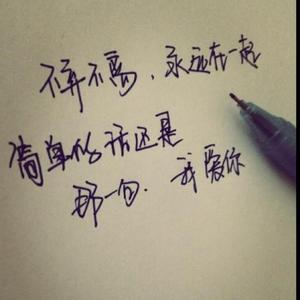 不弃不离，永远在一起
简单的话还是
那一句. 我爱你